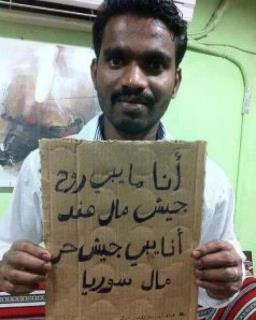 أنا ما يبي روح
جيش مال هند
أنا يبي جيش حر
مال سوريا